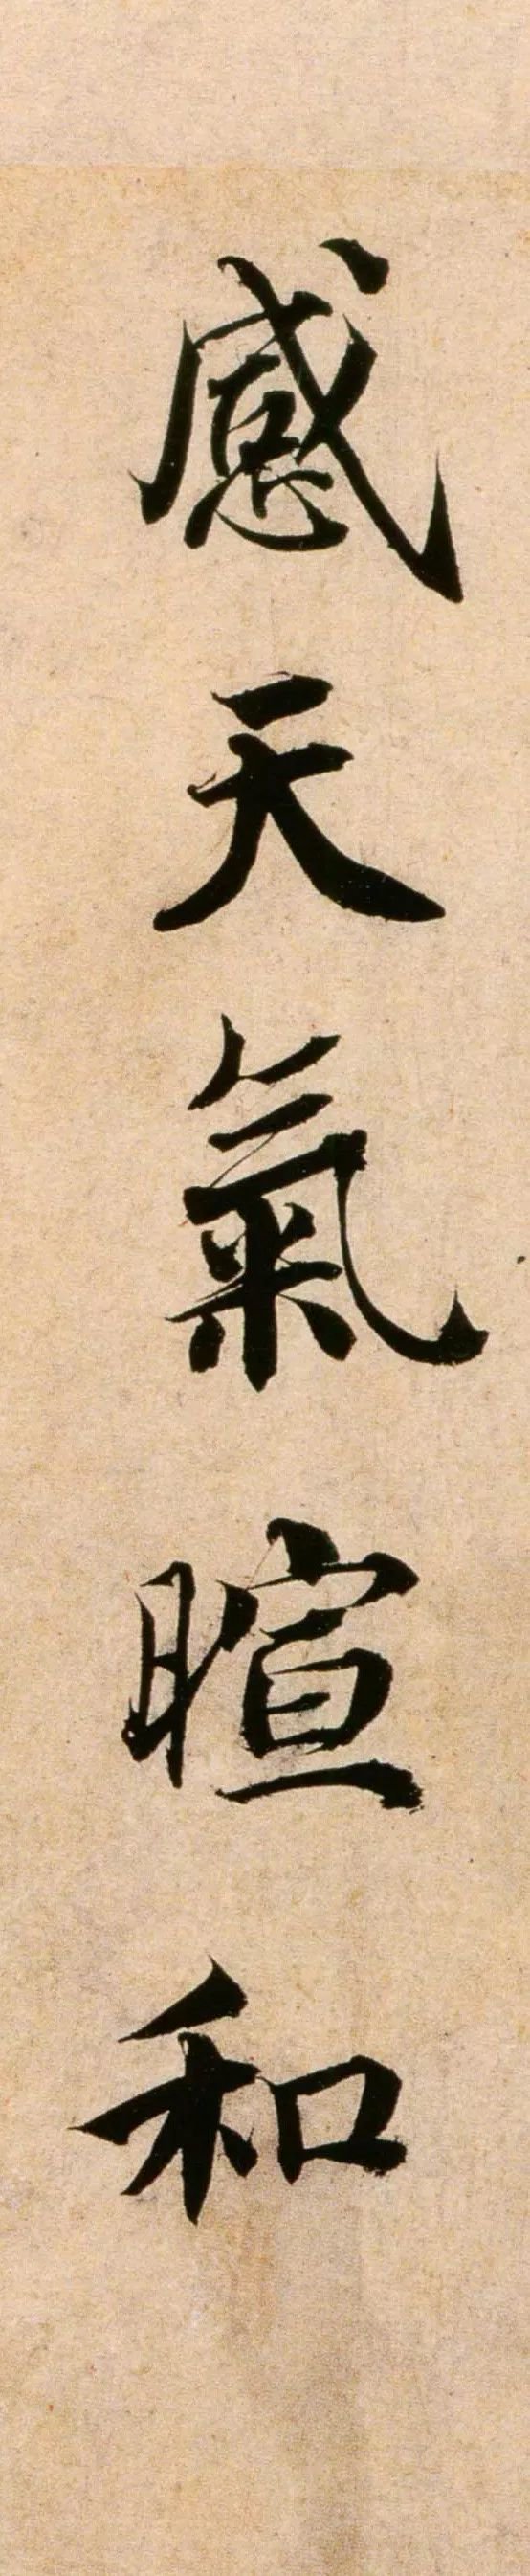 感天氣暄和